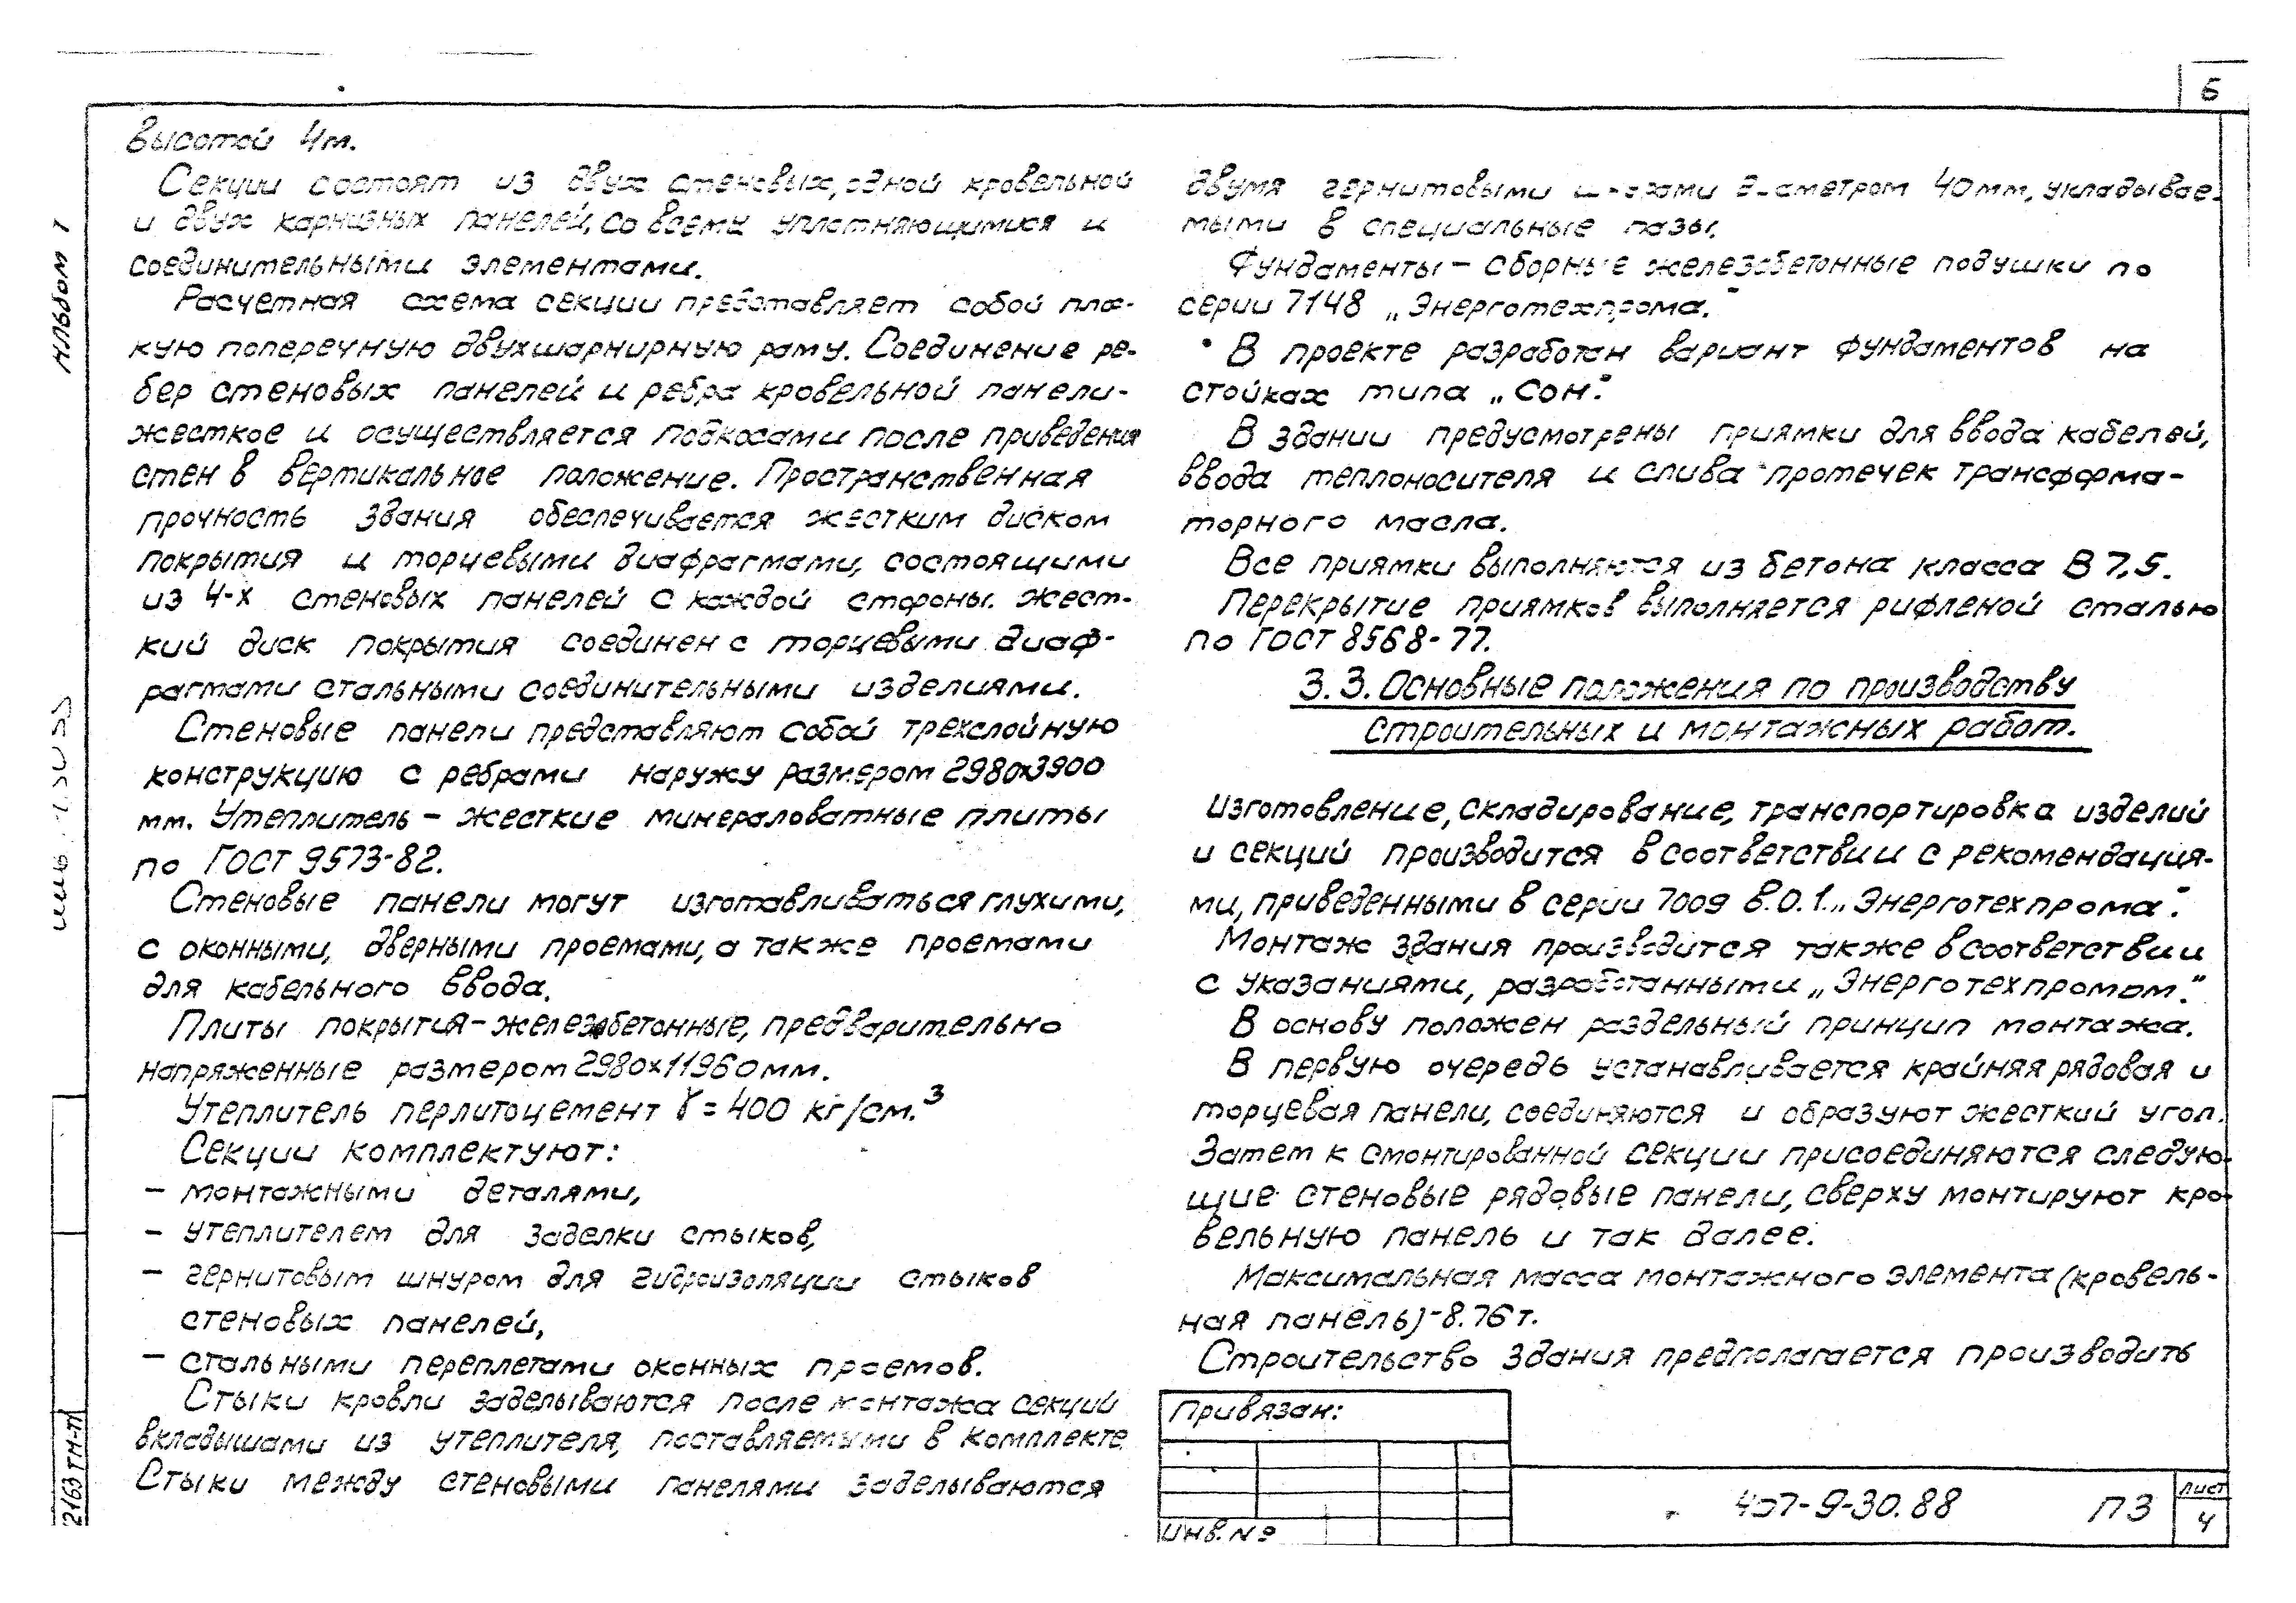 6
Альбом 1
высотой 4м.
Секции состоят из двух стеновых, одной кровельной
и двух карнизных панелей, со всеми уплотняющимися и
соединительными элементами.
Расчетная схема секции представляет собой плос-
кую поперечную двухшарнирную раму. Соединение ре-
бер стеновых панелей и ребра кровельной панели-
жесткое и осуществляется подкосами после приведения
стен в вертикальное положение. Пространственная
прочность здания обеспечивается жестким диском
покрытия и торцевыми диафрагмами, состоящими
из 4-х стеновых панелей с каждой стороны. Жест-
кий диск покрытия соединен с торцевыми диаф-
рагмами стальными соединительными изделиями.
Стеновые панели представляют собой трехслойную
конструкцию с ребрами наружу размером 2980х3900
мм. Утеплитель – жесткие минераловатные плиты
по ГОСТ 9573-82.
Стеновые панели могут изготавливаться глухими,
с оконными, дверными проемами, а также проемами
для кабельного ввода.
Плиты покрытия – железобетонные, предварительно
напряженные размером 2980х11960мм.
Утеплитель перлитоцемент γ = 400 кг/см.³
Секции комплектуют:
– монтажными деталями,
– утеплителем для заделки стыков,
– гернитовым шнуром для гидроизоляции стыков
стеновых панелей,
– стальными переплетами оконных проемов.
Стыки кровли заделываются после монтажа секций
вкладышами из утеплителя, поставляемыми в комплекте.
Стыки между стеновыми панелями заделываются
двумя гернитовыми диаметром 40мм, укладывае-
мыми в специальные пазы.
Фундаменты – сборные железобетонные подушки по
серии 7148 „Энерготехпрома."
В проекте разработан вариант фундаментов на
стойках типа „СОН".
В здании предусмотрены приямки для ввода кабелей,
ввода теплоносителя и слива протечек трансформа-
торного масла.
Все приямки выполняются из бетона класса В 7,5.
Перекрытие приямков выполняется рифленой сталью
по ГОСТ 8568-77.
3.3. Основные положения по производству
строительных и монтажных работ.
Изготовление, складирование, транспортировка изделий
и секций производится в соответствии с рекомендация-
ми, приведенными в серии 7009 в.0.1 „Энерготехпрома".
Монтаж здания производится также в соответствии
с указаниями, разработанными „Энерготехпромом."
В основу положен раздельный принцип монтажа.
В первую очередь устанавливается крайняя рядовая и
торцевая панели, соединяются и образуют жесткий угол.
Затем к смонтированной секции присоединяются следую-
щие стеновые рядовые панели, сверху монтируют кро-
вельную панель и так далее.
Максимальная масса монтажного элемента (кровель-
ная панель)-8.76т.
Строительство здания предполагается производить
Привязан:
Инв. №
407-9-30.88 ПЗ
Лист
4
2163 ТМ-Т1